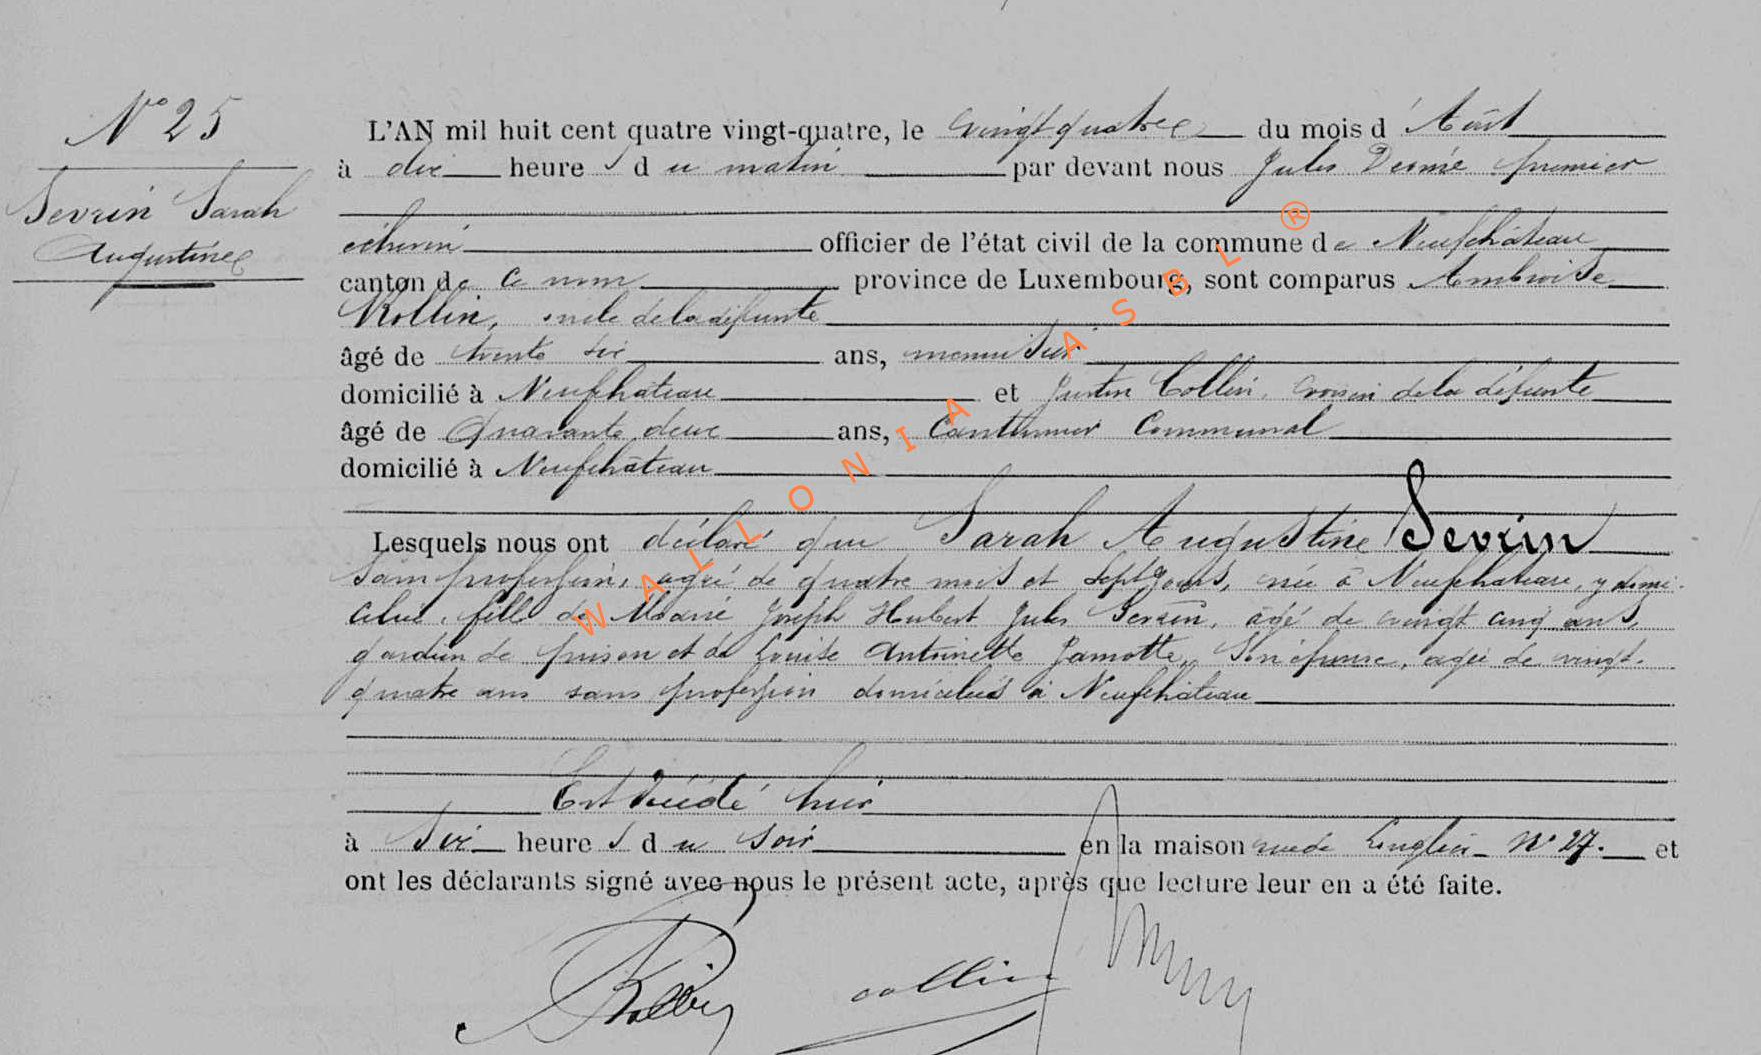 N° 25
Sevrin Sarah
Augustine
L'AN mil huit cent quatre vingt-quatre, le vingt quatre du mois d' Août
à dix heure s du matin par devant nous Jules premier
échevin officier de l'état civil de la commune de Neufchâteau
canton de ce nom province de Luxembourg, sont comparus Ambroise
Rollin, oncle de la défunte
âgé de trente six ans, menuisier
domicilié à Neufchâteau et Justin Collin, cousin de la défunte
âgé de Quarante deux ans, Cantonnier Communal
domicilié à Neufchâteau
Lesquels nous ont déclaré que Sarah Augustine Sevrin
sans profession, agée de quatre mois et sept jours, née à Neufchateau, y domi-
ciliée, fille de Marie Joseph Hubert Jules Sevrin, âgé de vingt cinq ans,
gardien de prison et de Louise Antoinette Jamotte, son épouse, agée de vingt-
quatre ans sans profession domiciliés à Neufchâteau
Est décédé hier
à six heure s du soir en la maison rue de Longlier N° 27. et
ont les déclarants signé avec nous le présent acte, après que lecture leur en a été faite.
Rollin collin
WALLONIA ASBL ®